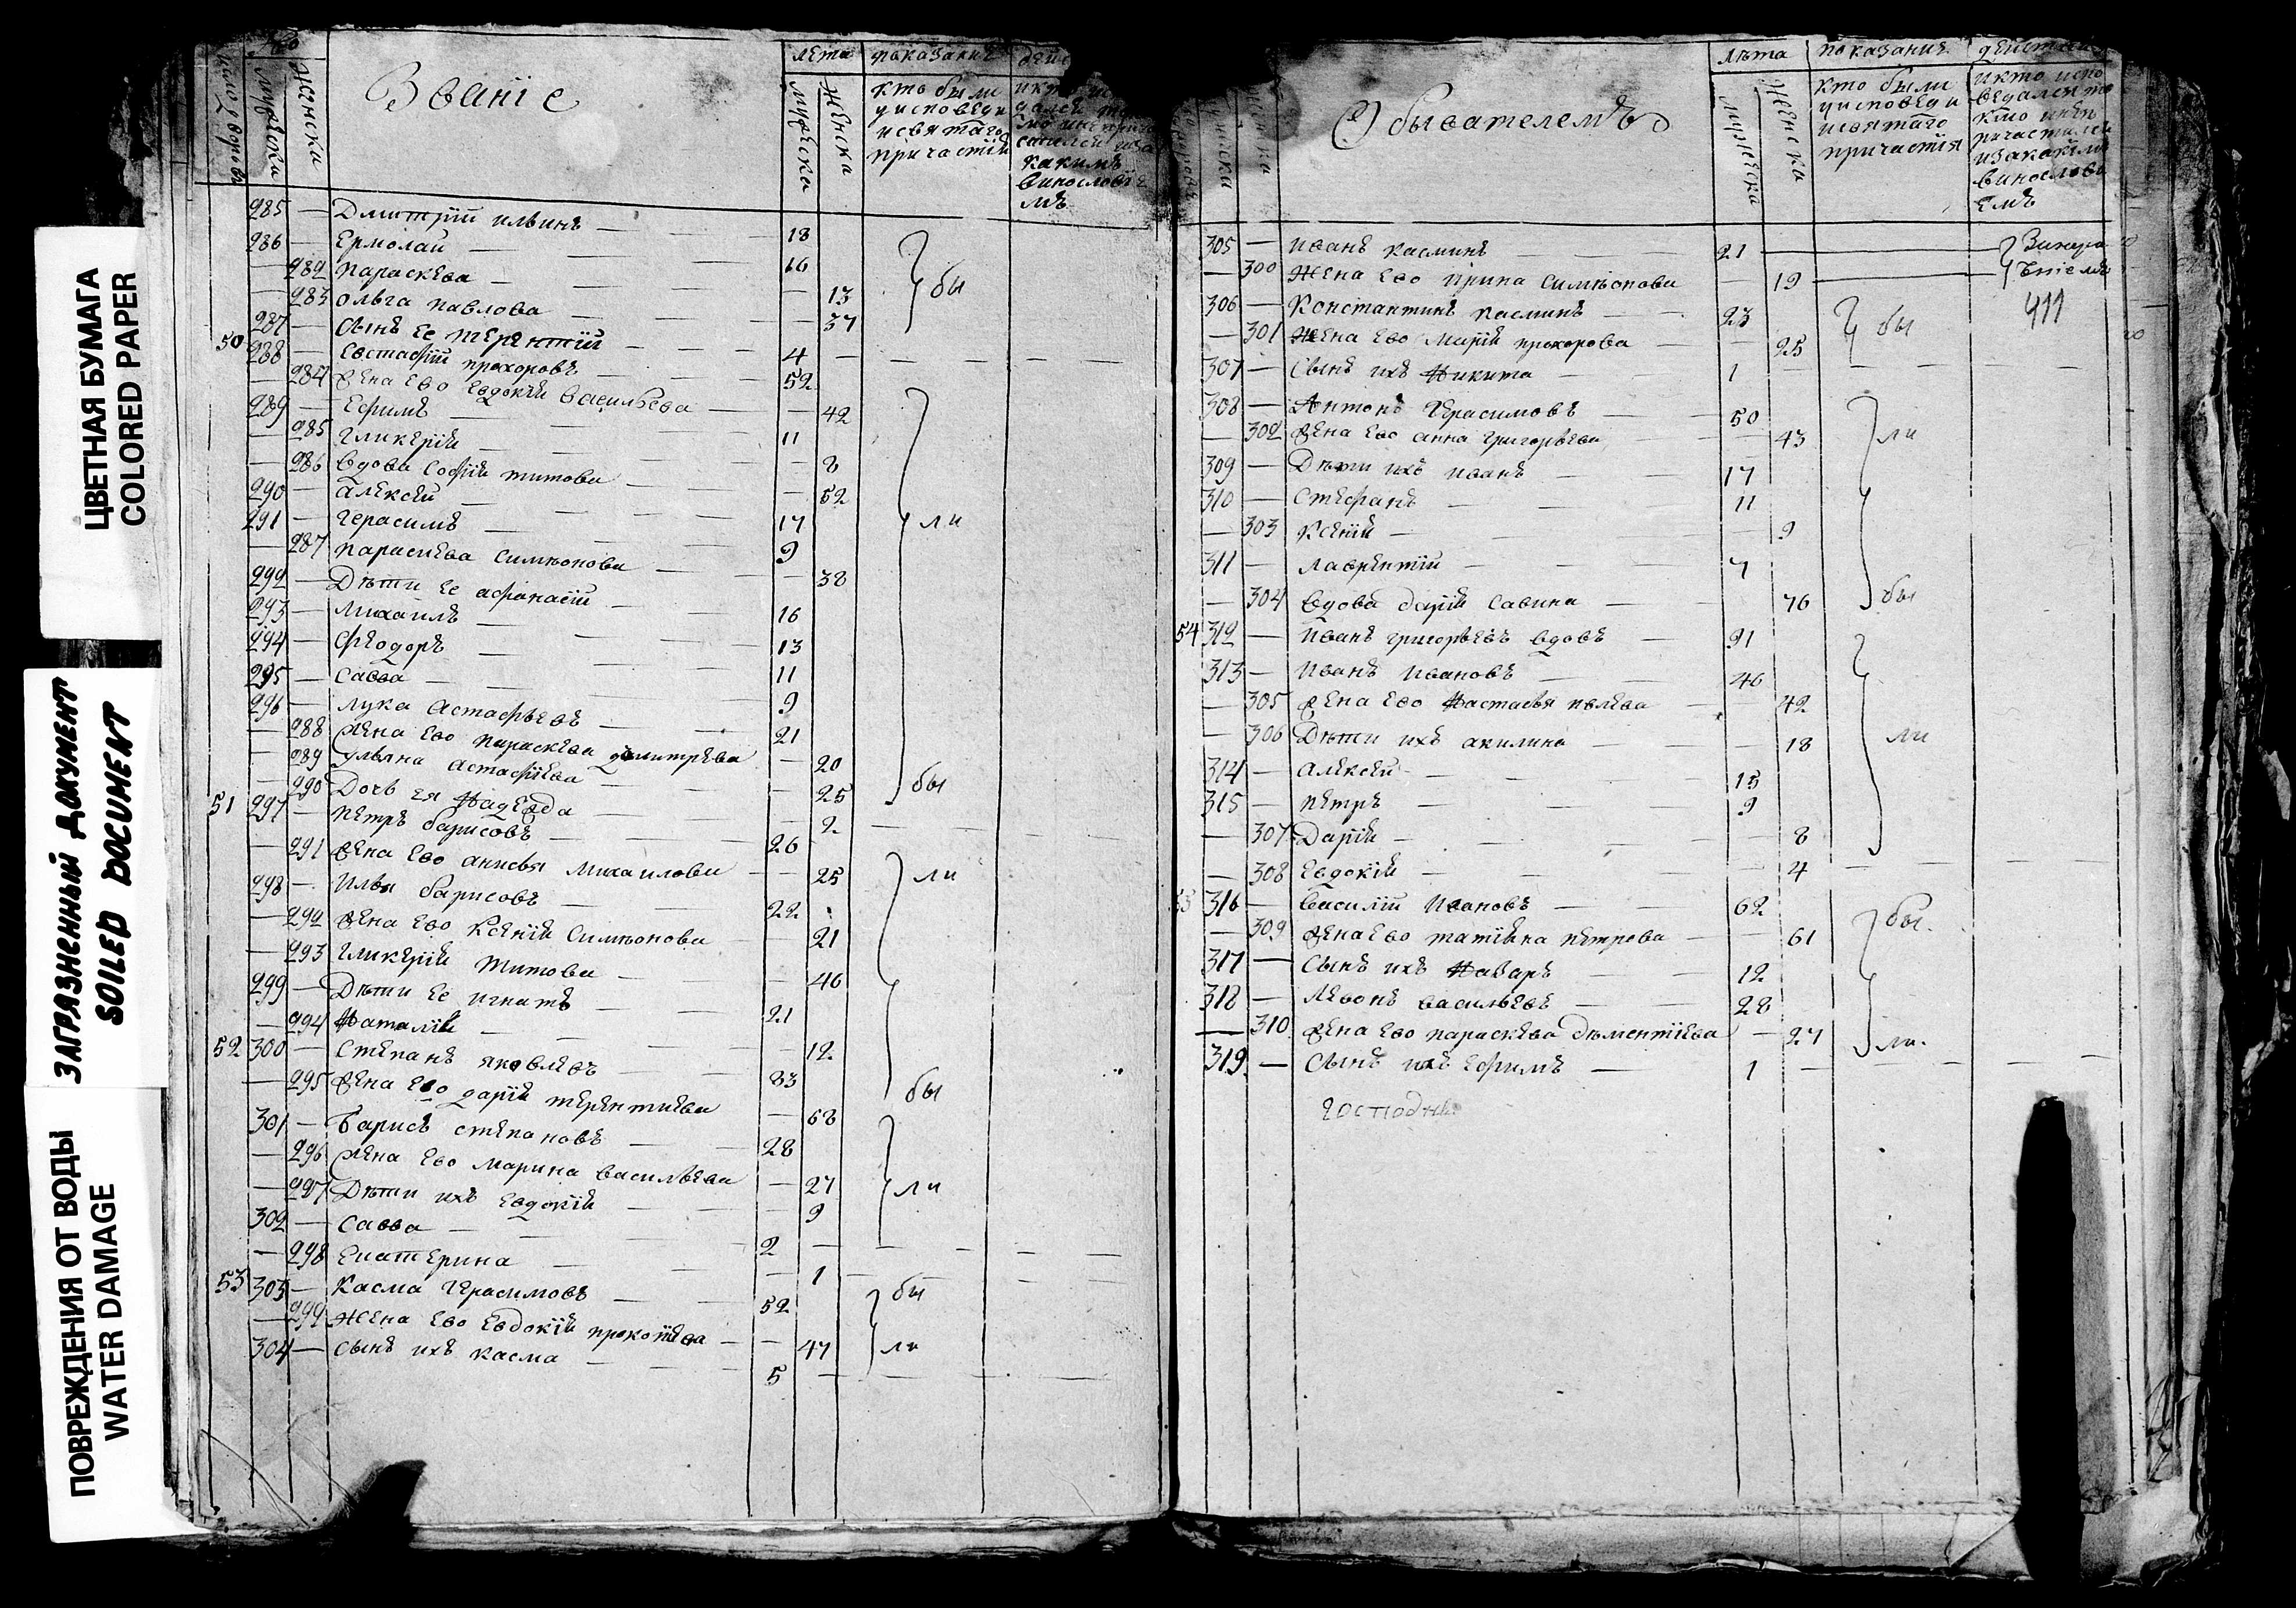 ЦВЕТНАЯ БУМАГА
COLORED PAPER
ЗАГРЯЗНЕННЫЙ ДОКУМЕНТ
SOILED DOCUMENT
ПОВРЕЖДЕНИЯ ОТ ВОДЫ
WATER DAMAGE
Званіе
мужеска
женска
лета
показаніе
мужеска
женска
кто были
у исповеди
и святаго
причастія
каким
винословіе
мъ
285 — Дмитрій ильинъ — 18
286 — Ермолаи — 16
— 282 параскева — 13
— 283 ольга павлова — 37
бы
287 — сынъ ее терентій — 4
50 288 — Евстафій прохоровъ — 52
— 284 жена ево евдокія васильева — 42
289 — Ефимъ — 11
— 285 гликерія — 8
— 286 вдова софія титова — 52
290 — алексеи — 17
291 — герасимъ — 9
ли
— 287 параскева симионова — 38
292 — Дѣти ее афанасій — 16
293 — михаилъ — 13
294 — феодоръ — 11
295 — савва — 9
296 — лука астафьевъ — 21
— 288 жена ево параскева димитрева — 20
— 289 ульяна астафіева — 25
бы
— 290 Дочь ея надежда — 2
51 297 — петръ барисовъ — 26
— 291 жена ево анисья михаилова — 25
ли
298 — илья барисовъ — 22
— 292 жена ево ксенія симионова — 21
— 293 гликерія титова — 46
299 — Дѣти ее игнатъ — 21
— 294 наталія — 12
52 300 — степанъ яковлевъ — 83
бы
— 295 жена ево дарія терентиева — 68
301 — барисъ степановъ — 28
— 296 жена ево марина василѣева — 27
ли
— 297 Дѣти ихъ евдокія — 9
302 — савва — 2
— 298 екатерина — 1
53 303 — касма герасимовъ — 52
бы
— 299 жена ево евдокія прокопіева — 47
ли
304 — сынъ ихъ касма — 5
Обывателемъ
лѣта
показание
мужеска
женска
кто были
у исповеди
и святаго
причастія
и кто испо
ведался то
кмо и не
причастился
и за какімъ
винослові
емъ
305 — иванъ касминъ — 21
— 300 жена ево ирина симионова — 19
306 — константинъ касминъ — 23
— 301 жена ево марія прохорова — 25
бы
411
307 — сынъ ихъ никита — 1
308 — антонъ герасимовъ — 50
— 302 жена ево анна григорьева — 43
ли
309 — Дѣти ихъ иванъ — 17
310 — стефанъ — 11
— 303 ксенія — 9
311 — лаврентій — 7
— 304 вдова дарія савина — 76
бы
54 312 — иванъ григорьевъ вдовъ — 91
313 — иванъ ивановъ — 46
— 305 жена ево настасья — 42
— 306 Дѣти ихъ акилина — 18
ли
314 — алексеи — 13
315 — петръ — 9
— 307 Дарія — 8
— 308 евдокія — 4
55 316 — василій ивановъ — 62
бы.
— 309 жена ево татіяна петрова — 61
317 — сынъ ихъ назаръ — 12
318 — левонъ васильевъ — 28
— 310 жена ево параскева дѣментіева — 27
ли.
319 — сынъ ихъ ефимъ — 1